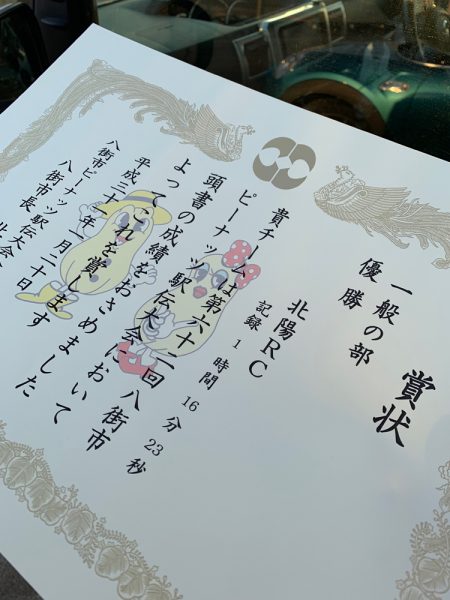 賞状
一般の部
優勝
北陽RC
記録 1時間16分23秒
貴チームは第六十二回八街市
ピーナッツ駅伝大会において
頭書の成績をおさめました
よってこれを賞します
平成三十一年一月二十日
八街市ピーナッツ駅伝大会
八街市長